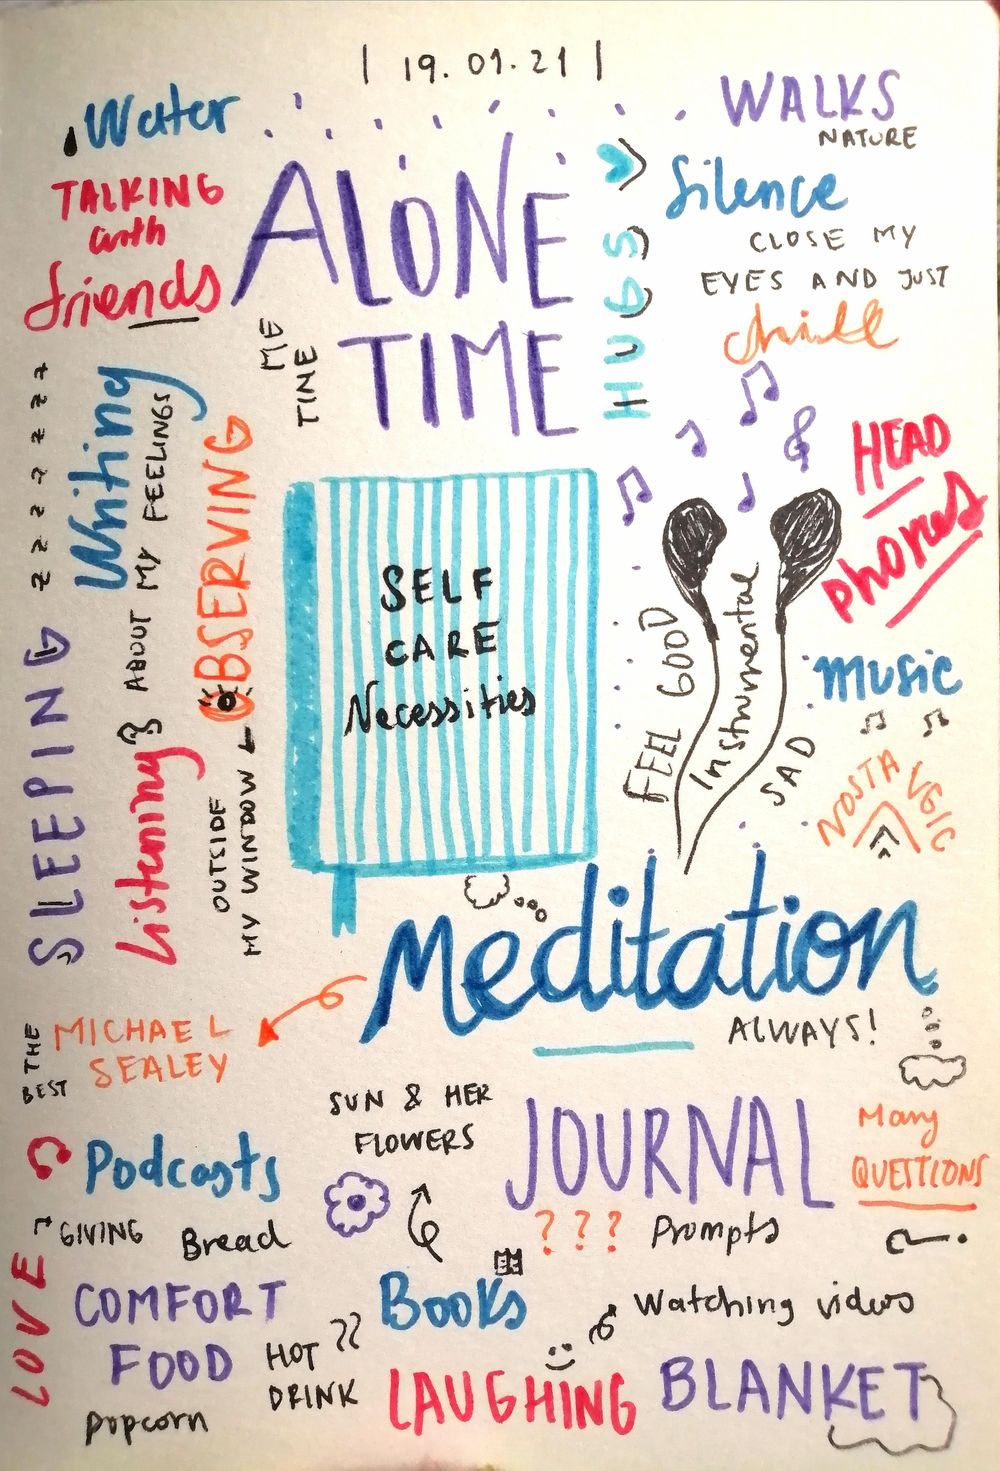 | 19.01.21 |
Water
TALKING
with
friends
ALONE
TIME
ME
TIME
HUGS
WALKS
NATURE
Silence
CLOSE MY
EYES AND JUST
chill
zzzzzzz
SLEEPING
Writing
ABOUT MY FEELINGS
Listening
OBSERVING
OUTSIDE
MY WINDOW
SELF
CARE
Necessities
HEAD
PHONES
FEEL GOOD
Instrumental
SAD
Music
NOSTALGIC
Meditation
ALWAYS!
THE
BEST
MICHAEL
SEALEY
SUN & HER
FLOWERS
JOURNAL
??? Prompts
Many
QUESTIONS
?
Podcasts
GIVING
LOVE
Bread
COMFORT
FOOD
popcorn
HOT
DRINK
Books
Watching videos
LAUGHING
BLANKET